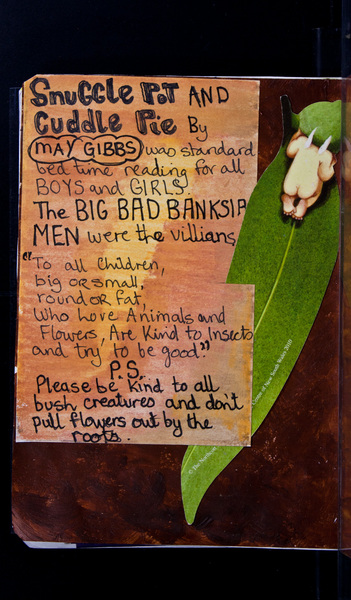 SnuGGle PoT AND
Cuddle Pie By
MAY GIBBS was standard
bed time reading for all
BOYS and GIRLS
The BIG BAD BANKSIA
MEN were the villians
"To all Children,
big OR small,
round OR Fat,
Who Love Animals and
Flowers, Are Kind to Insects
and try to be good."
P.S.
Please be kind to all
bush creatures and don't
pull flowers out by the
roots.